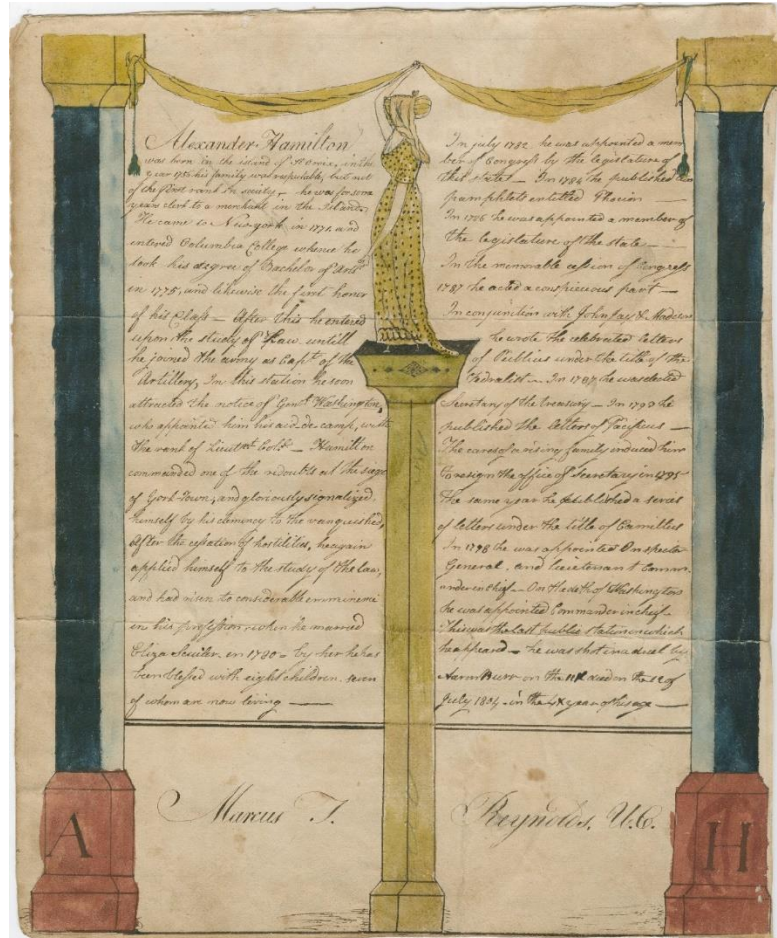 Alexander Hamilton
was born in the island of St Croix, in the
year 1756 his family was respectable, but not
of the first rank in society — he was for some
years clerk to a merchant in the Island
He came to Newyork in 1771, and
entered Columbia College whence he
took his degree of Bachelor of Arts
in 1775, and likewise the first honor
of his Class — After this he entered
upon the study of Law untill
he joined the army as Capt of the
Artillery, In this station he soon
attracted the notice of Genl Washington,
who appointed him his aid de camp, with
the rank of Lieutnt Coll — Hamilton
commanded one of the redoubts at the sage
of York-Town; and gloriously signalized
himself by his clemency to the vanquished,
After the cessation of hostilities, he again
applied himself to the study of the law,
and had risen to considerable
in his profession when he married
Eliza in 1780 — by her he has
been blessed with eight children seven
of whom are now living —
In july 1782 he was appointed a mem
ber of Congress by the legislature of
this state — In 1784 he published
pamphlets entitled Phocion
In 1786 he was appointed a member of
the legislature of the state —
In the memorable session of Congress
1787 he acted a conspicuous part —
In conjunction with John Jay &
he wrote the celebrated letters
of Publius under the title of the
Federalist — In 1789 he was elected
Secretary of the treasury — In 1793 he
published the letters of Pacificus —
The cares of a rising family induced him
to resign the office of Secretary in 1795
The same year he published a series
of letters under the title of Camillus
In 1798 he was appointed Inspector
General, and lieutenant Comm
ander in chief — On the death of Washington
he was appointed Commander in chief —
This was the last public station in which
he appeared — he was shot in a duel by
Aaron Burr on the 11th died on the 12 of
July 1804 — in the year of his age —
Marcus T. Reynolds, U.C.
A
H